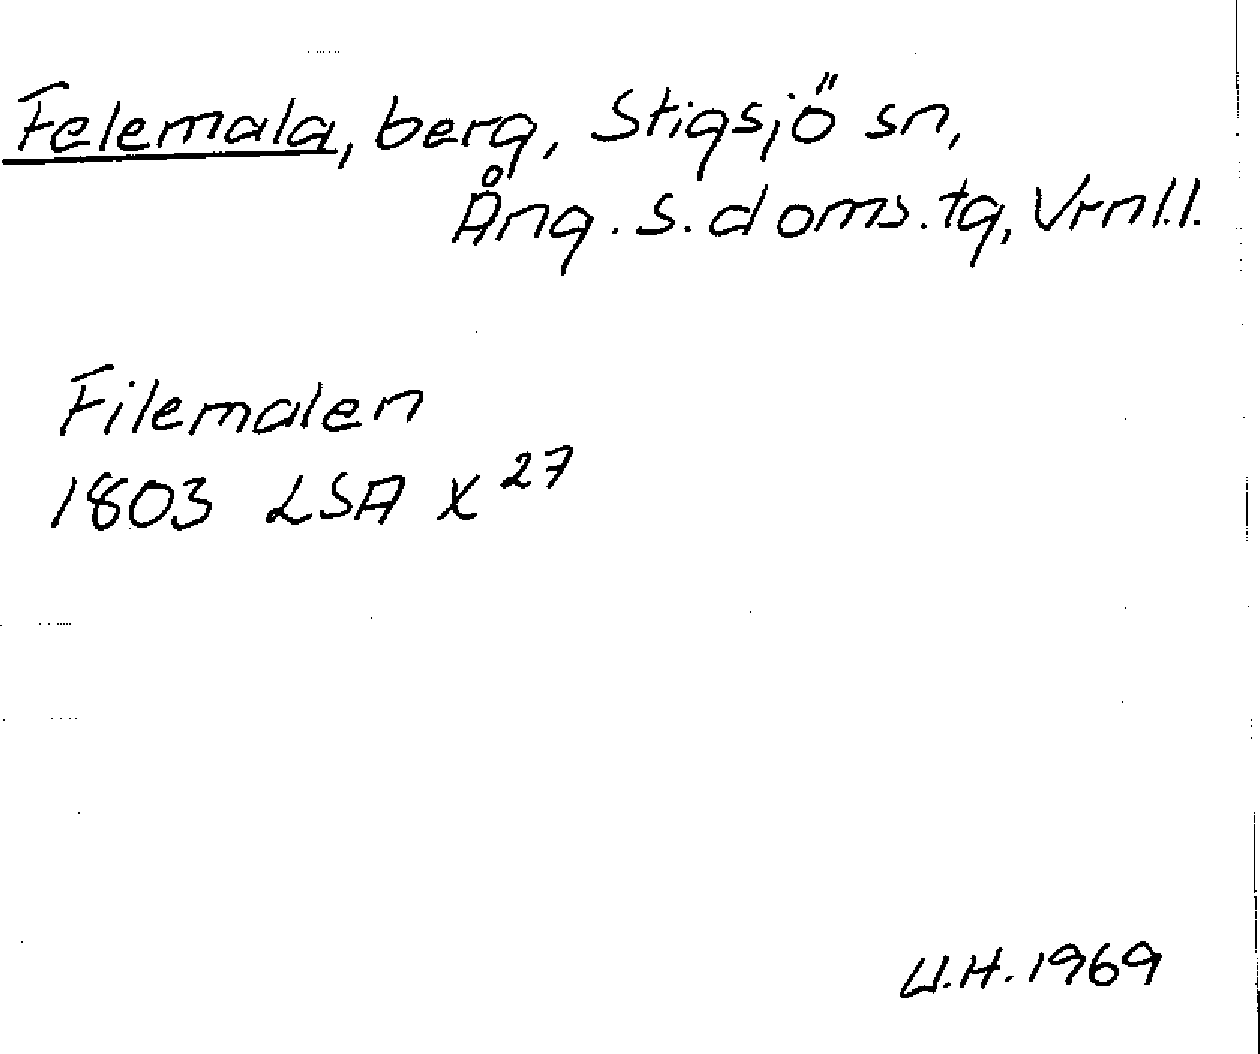 Felemala, berg, Stigsjö sn,
Ång. s. doms. tg, Vrnl.l.
Filemalen
1803 LSA X²⁷
U.H. 1969